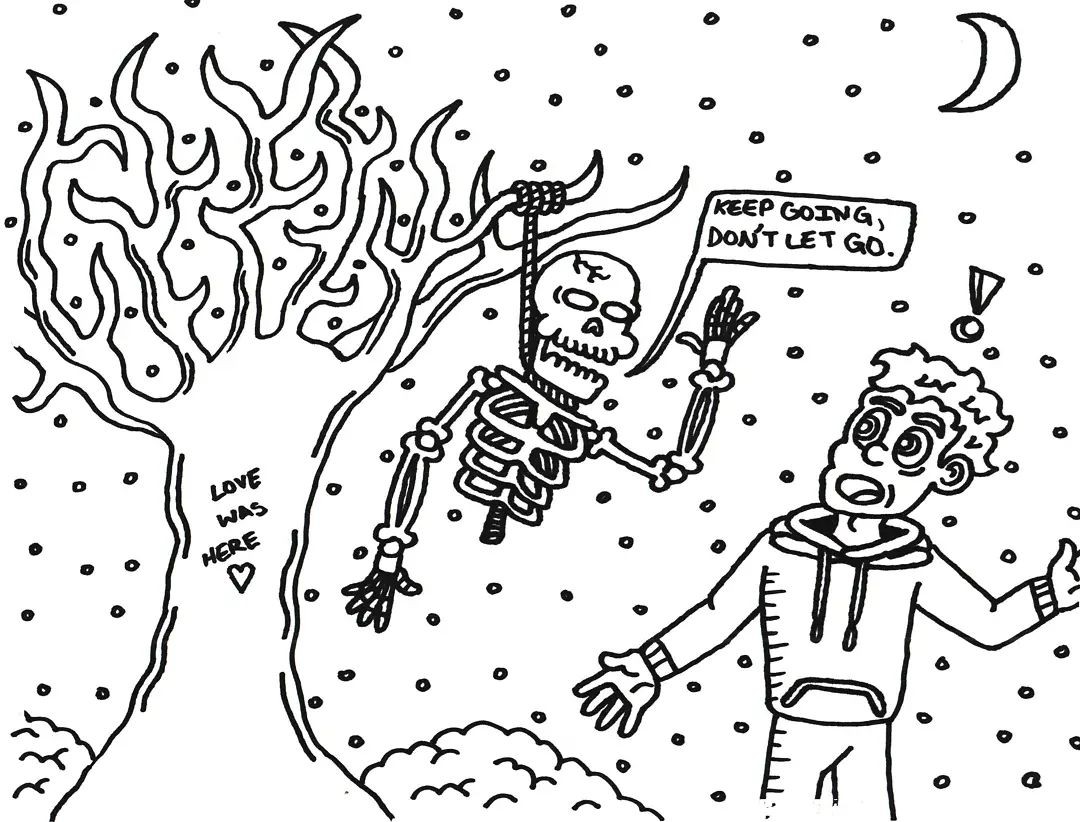 KEEP GOING,
DON'T LET GO.
!
LOVE
WAS
HERE